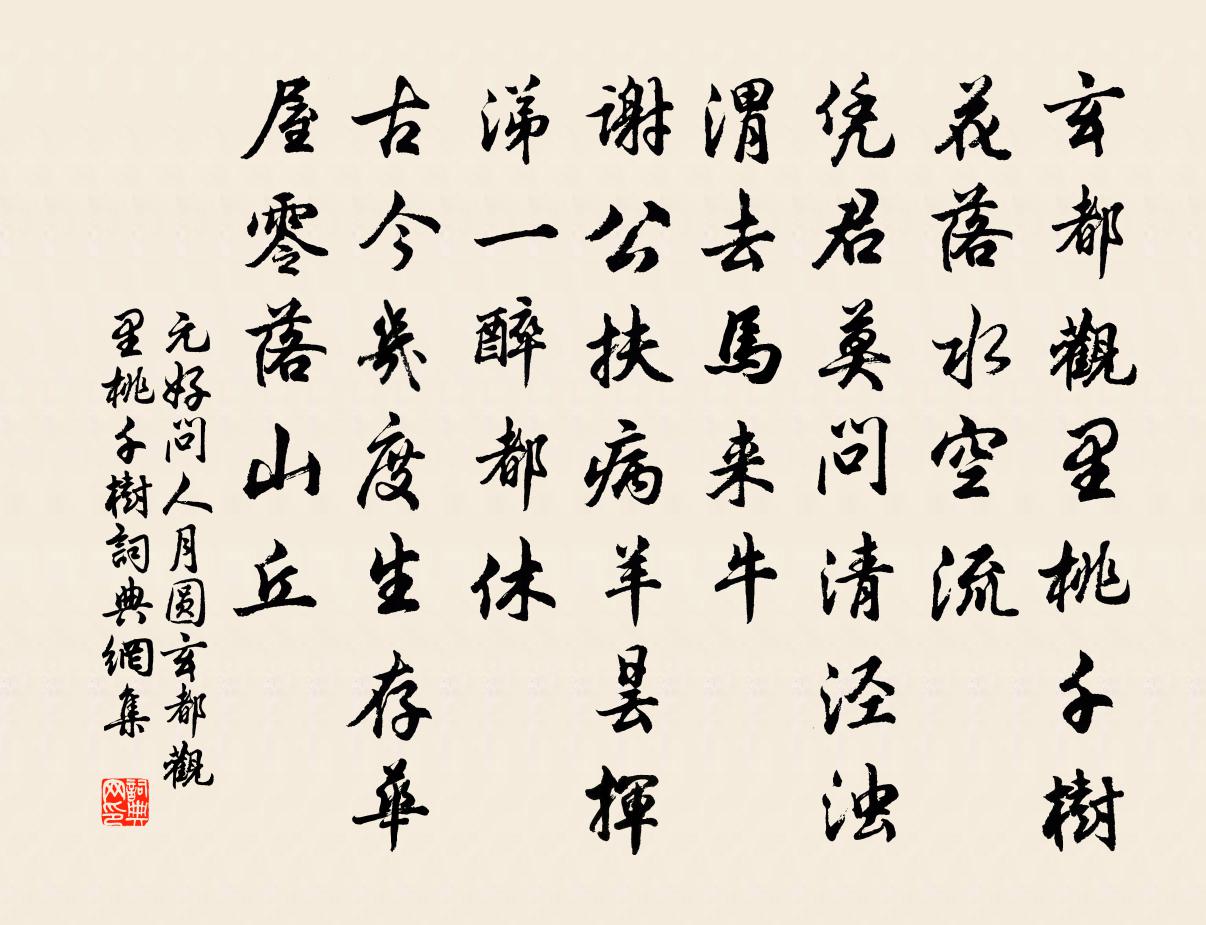 玄都觀里桃千樹
花落水空流
凭君莫問清泾浊
渭去馬来牛
謝公扶病羊昙揮
涕一醉都休
古今幾度生存華
屋零落山丘
元好問人月圆玄都觀
里桃千樹詞典網集
詞典网印